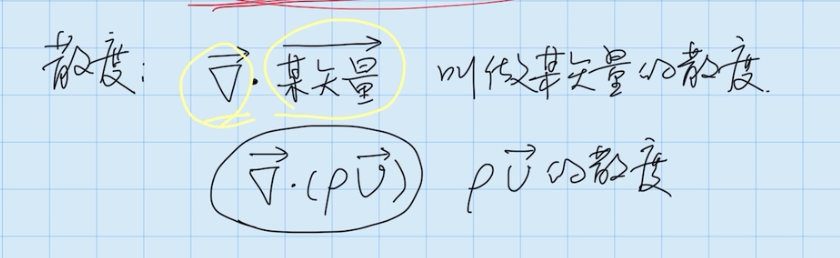 散度: ∇⃗·某矢量 叫做某矢量的散度.
∇⃗·(ρv⃗) ρv⃗的散度